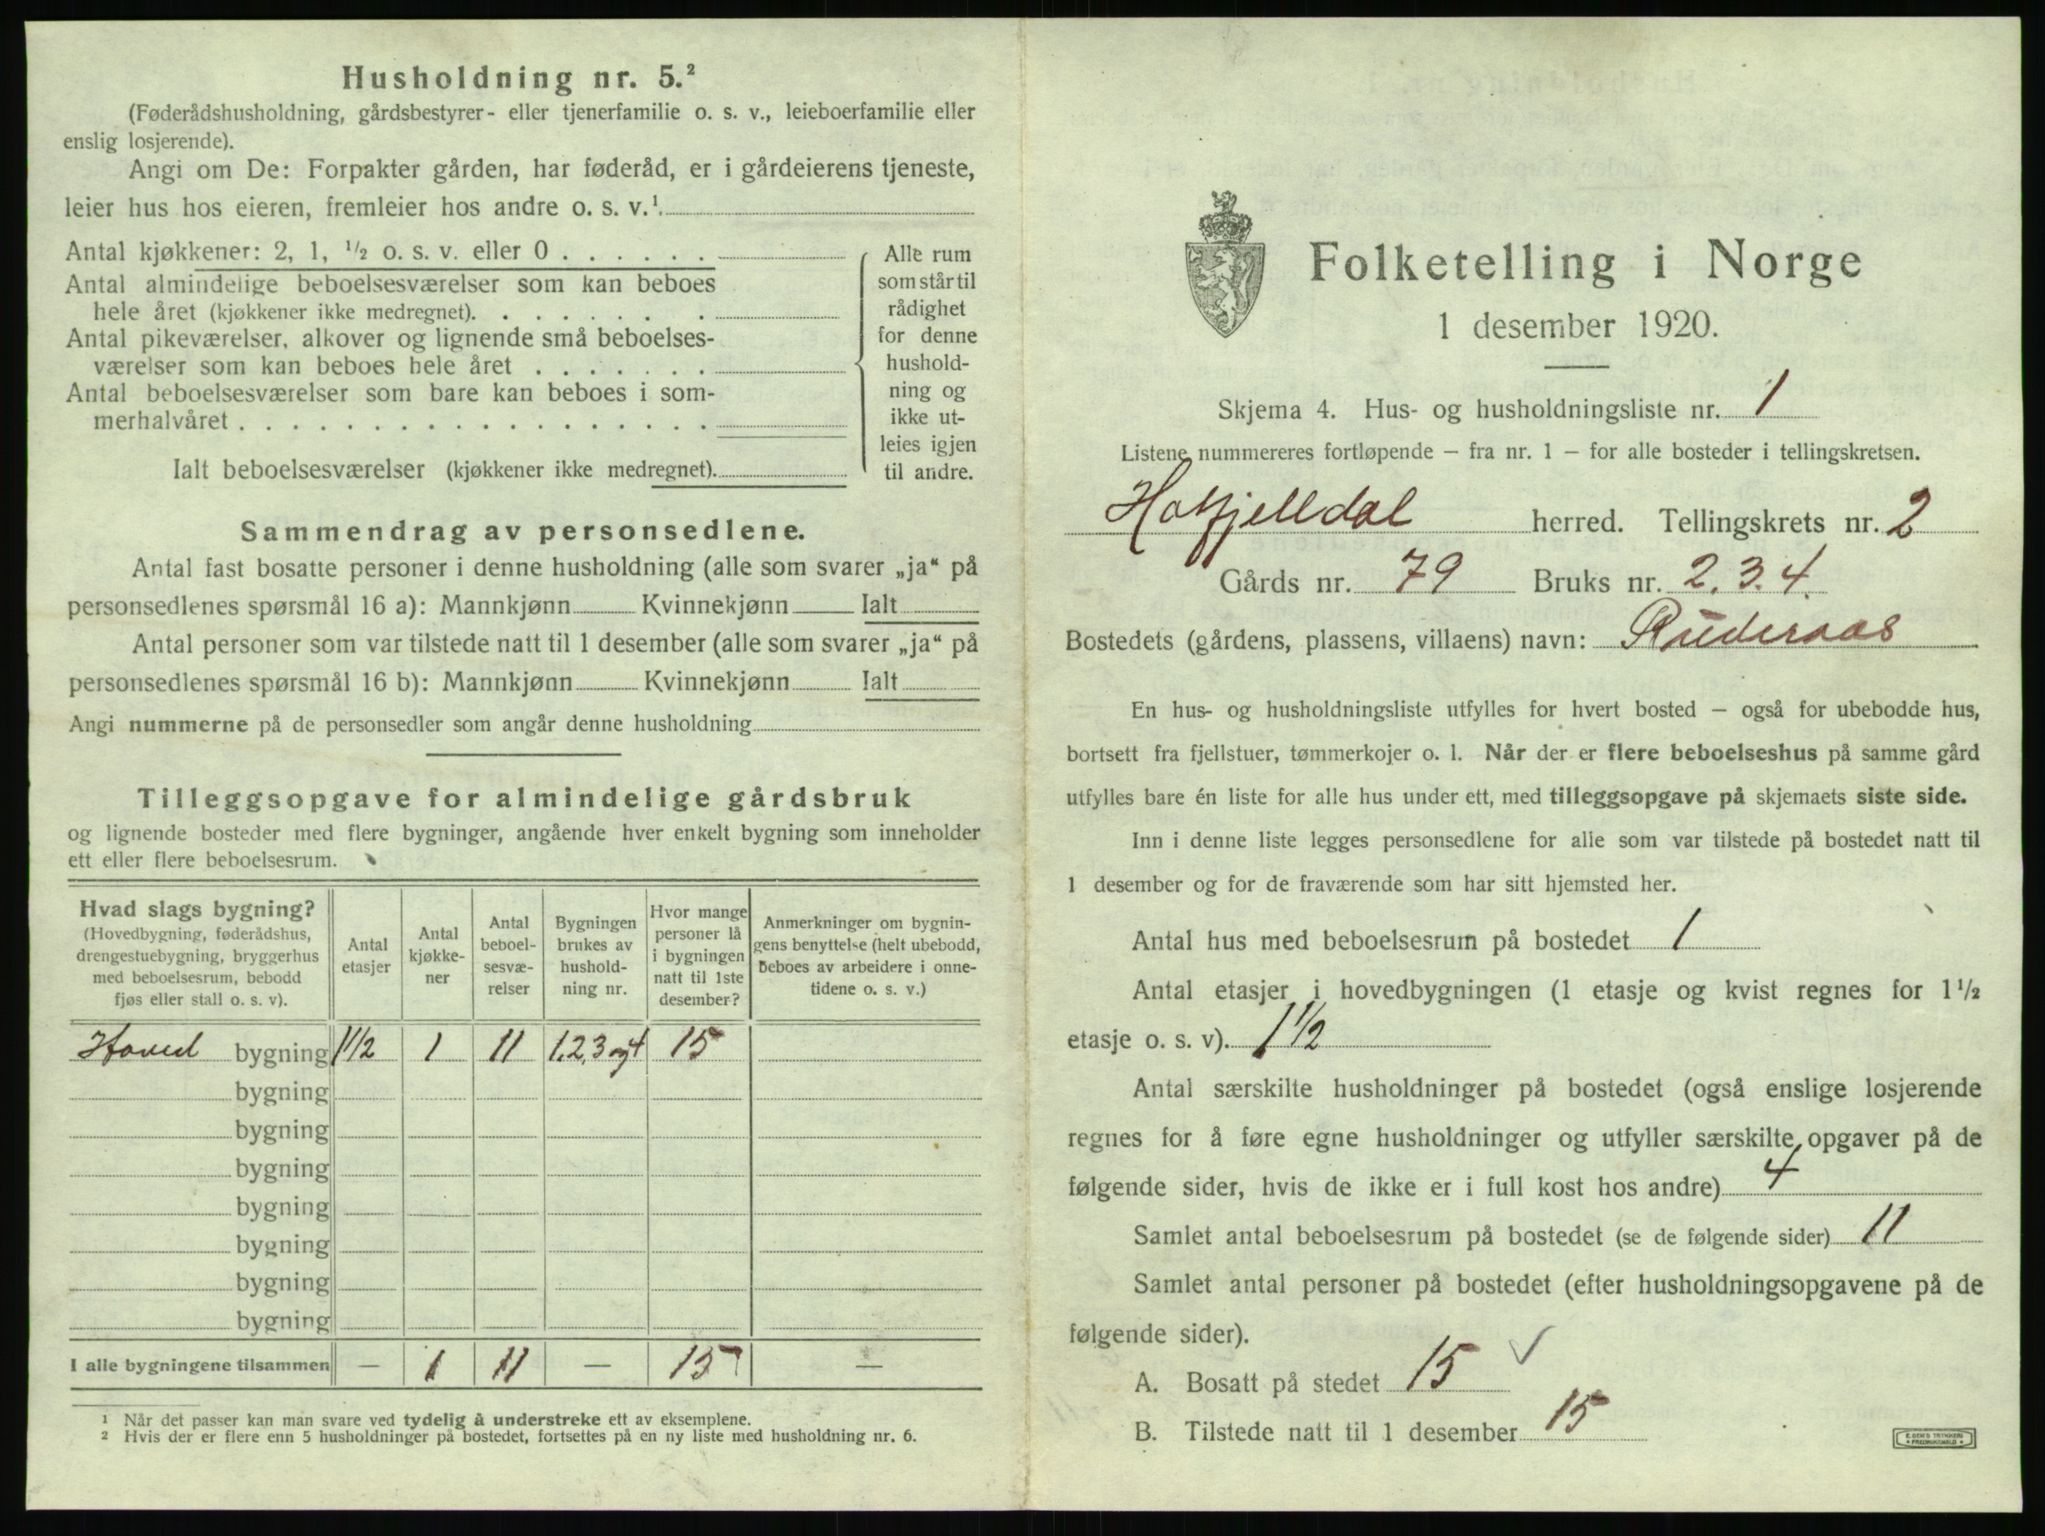 Husholdning nr. 5.²
(Føderådshusholdning, gårdsbestyrer- eller tjenerfamilie o. s. v., leieboerfamilie eller
enslig losjerende).
Angi om De: Forpakter gården, har føderåd, er i gårdeierens tjeneste,
leier hus hos eieren, fremleier hos andre o. s. v.¹
Antal kjøkkener: 2, 1, ½ o. s. v. eller 0 . . . . . .
Antal almindelige beboelsesværelser som kan beboes
hele året (kjøkkener ikke medregnet). . . . . . . .
Antal pikeværelser, alkover og lignende små beboelses-
værelser som kan beboes hele året . . . . . . .
Antal beboelsesværelser som bare kan beboes i som-
merhalvåret . . . . . . . . . . . . . . . . . .
Ialt beboelsesværelser (kjøkkener ikke medregnet).
Alle rum
som står til
rådighet
for denne
hushold-
ning og
ikke ut-
leies igjen
til andre.
Sammendrag av personsedlene.
Antal fast bosatte personer i denne husholdning (alle som svarer „ja“ på
personsedlenes spørsmål 16 a): Mannkjønn Kvinnekjønn Ialt
Antal personer som var tilstede natt til 1 desember (alle som svarer „ja“ på
personsedlenes spørsmål 16 b): Mannkjønn Kvinnekjønn Ialt
Angi nummerne på de personsedler som angår denne husholdning
Tilleggsopgave for almindelige gårdsbruk
og lignende bosteder med flere bygninger, angående hver enkelt bygning som inneholder
ett eller flere beboelsesrum.
Hvad slags bygning?
(Hovedbygning, føderådshus,
drengestuebygning, bryggerhus
med beboelsesrum, bebodd
fjøs eller stall o. s. v).
Antal
etasjer
Antal
kjøkke-
ner
Antal
beboel-
sesvæ-
relser
Bygningen
brukes av
hushold-
ning nr.
Hvor mange
personer lå
i bygningen
natt til 1ste
desember?
Anmerkninger om bygnin-
gens benyttelse (helt ubebodd,
beboes av arbeidere i onne-
tidene o. s. v.)
Hoved bygning 1½ 1 11 1,2,3 og 4 15
bygning
bygning
bygning
bygning
bygning
bygning
bygning
I alle bygningene tilsammen — 1 11 — 15 —
¹ Når det passer kan man svare ved tydelig å understreke ett av eksemplene.
² Hvis der er flere enn 5 husholdninger på bostedet, fortsettes på en ny liste med husholdning nr. 6.
Folketelling i Norge
1 desember 1920.
Skjema 4. Hus- og husholdningsliste nr. 1
Listene nummereres fortløpende — fra nr. 1 — for alle bosteder i tellingskretsen.
Hatfjelldal herred. Tellingskrets nr. 2
Gårds nr. 79 Bruks nr. 2. 3. 4.
Bostedets (gårdens, plassens, villaens) navn:
En hus- og husholdningsliste utfylles for hvert bosted — også for ubebodde hus,
bortsett fra fjellstuer, tømmerkojer o. l. Når der er flere beboelseshus på samme gård
utfylles bare én liste for alle hus under ett, med tilleggsopgave på skjemaets siste side.
Inn i denne liste legges personsedlene for alle som var tilstede på bostedet natt til
1 desember og for de fraværende som har sitt hjemsted her.
Antal hus med beboelsesrum på bostedet 1
Antal etasjer i hovedbygningen (1 etasje og kvist regnes for 1½
etasje o. s. v). 1½
Antal særskilte husholdninger på bostedet (også enslige losjerende
regnes for å føre egne husholdninger og utfyller særskilte opgaver på de
følgende sider, hvis de ikke er i full kost hos andre) 4
Samlet antal beboelsesrum på bostedet (se de følgende sider) 11
Samlet antal personer på bostedet (efter husholdningsopgavene på de
følgende sider).
A. Bosatt på stedet 15 ✓
B. Tilstede natt til 1 desember 15